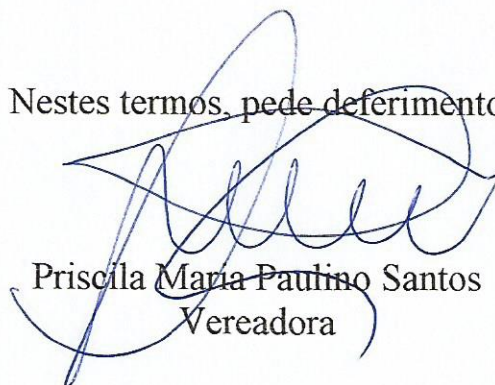 Nestes termos, pede deferimento
Priscila Maria Paulino Santos
Vereadora